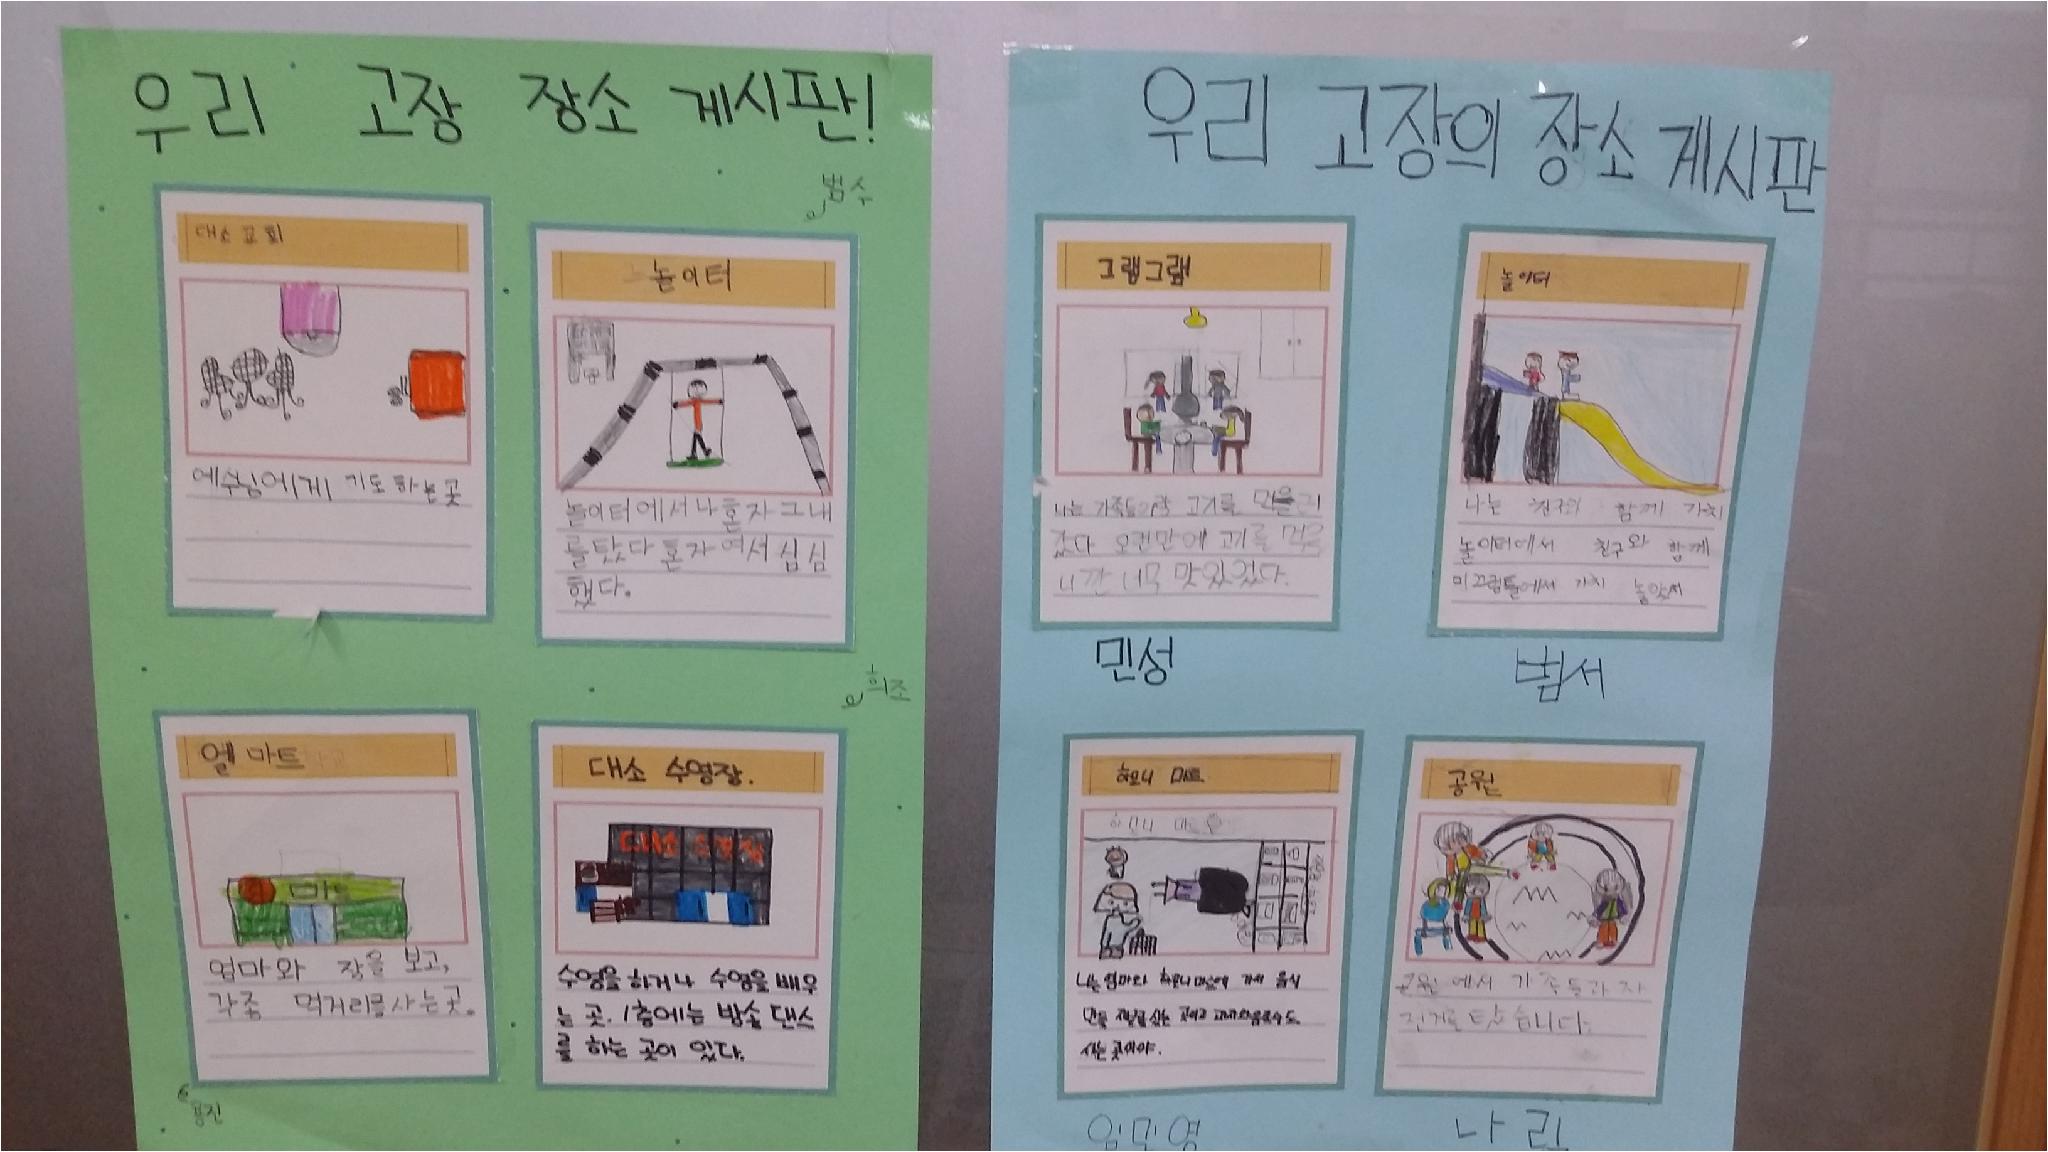 우리 고장 장소 게시판!
범수
대소교회
예수님에게 기도하는곳
놀이터
놀이터에서나혼자그내
를탔다혼자여서심심
했다.
희조
엘마트
마트
엄마와 장을 보고,
각종 먹거리를사는곳.
용진
대소 수영장.
대소 수영장
수영을 하거나 수영을 배우
는 곳. 1층에는 방송댄스
를 하는 곳이 있다.
우리 고장의 장소 게시판
그램그램
나는 가족들과 고기를 먹을러
갔다 오랜만에 고기를 먹으
니깐 너무 맛있있다.
민성
놀이터
나는 친구와 함께 가치
놀이터에서 친구와 함께
미끄럼틀에서 가치 놀았어
범서
하모니 마트
하모니 마트
나는 엄마와 하모니마트에 가서 음식
사는 곳이야.
임민영
공원
공원에서 가족들과자
전거를탔습니다.
나린